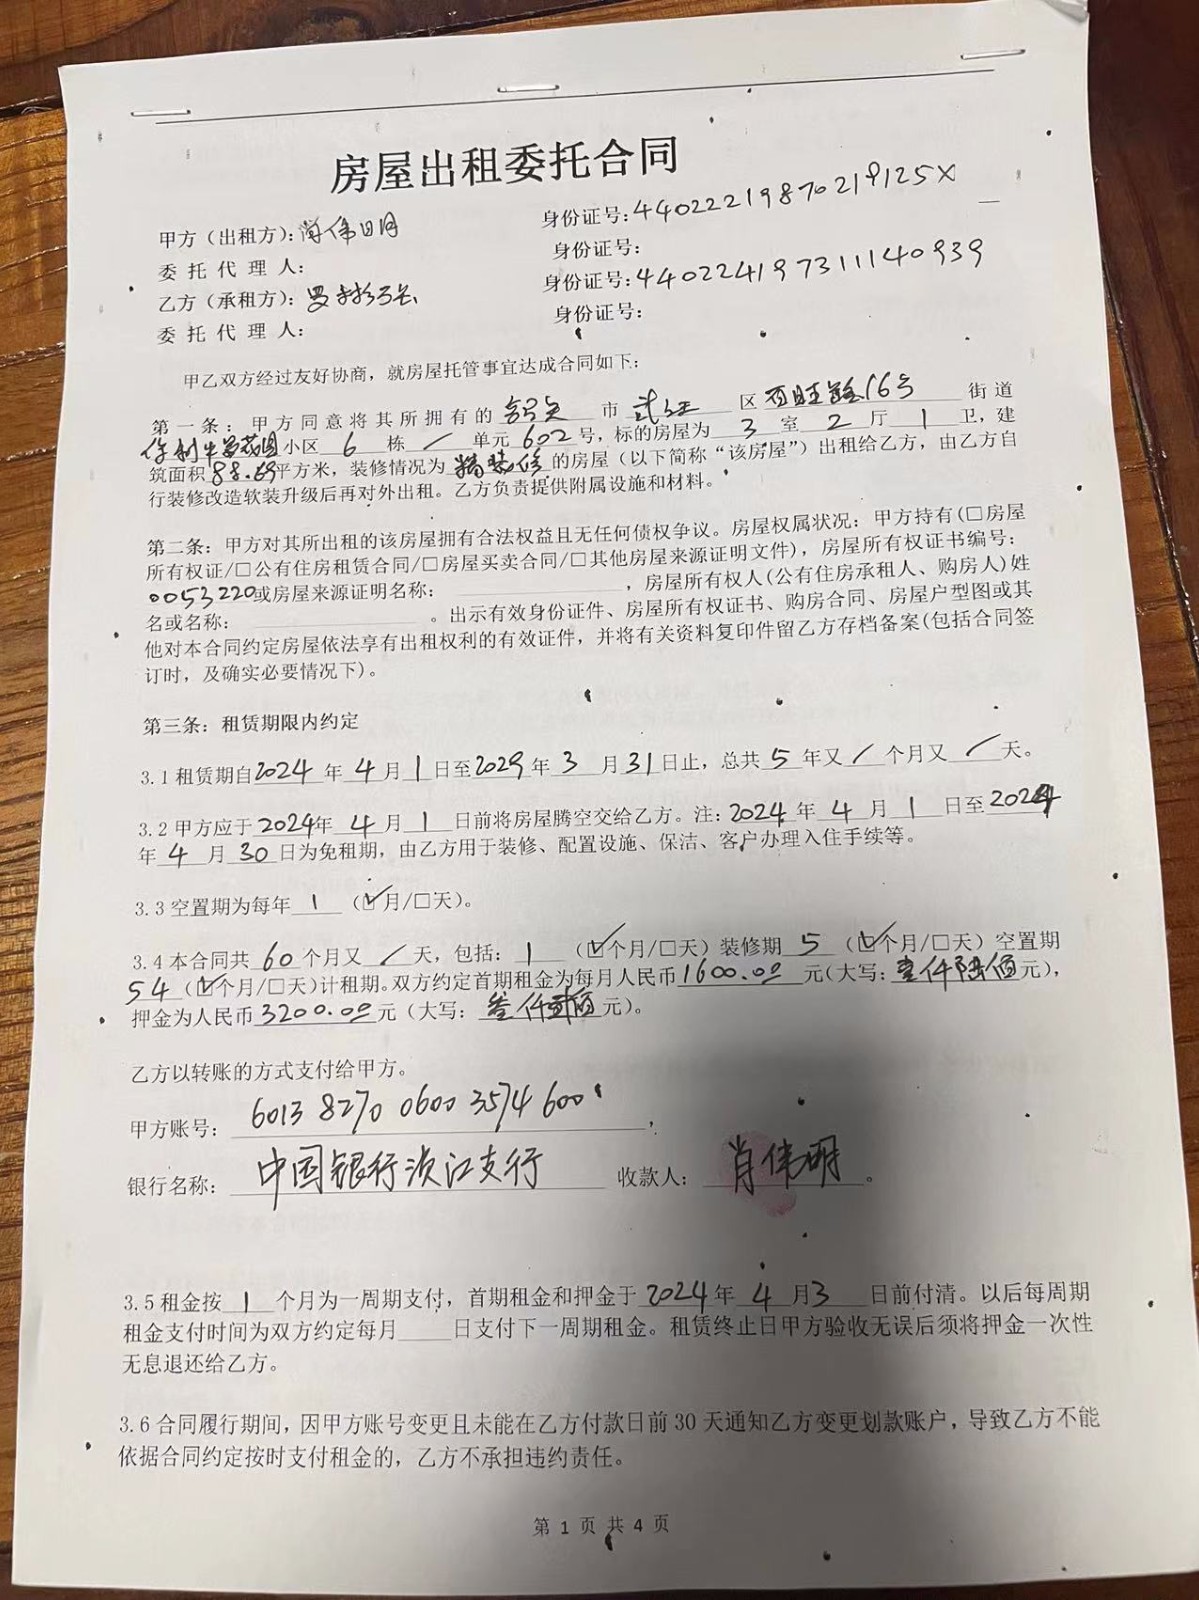 房屋出租委托合同
甲方（出租方）：肖伟明 身份证号：44022219870219125X
委托代理人： 身份证号：
乙方（承租方）：罗 身份证号：440224197311140939
委托代理人： 身份证号：
甲乙双方经过友好协商，就房屋托管事宜达成合同如下：
第一条：甲方同意将其所拥有的 韶关 市 武江 区 百旺路16号 街道
保利中宇花园小区 6 栋 / 单元 602 号，标的房屋为 3 室 2 厅 1 卫，建
筑面积88.69平方米，装修情况为 精装修 的房屋（以下简称“该房屋”）出租给乙方，由乙方自
行装修改造软装升级后再对外出租。乙方负责提供附属设施和材料。
第二条：甲方对其所出租的该房屋拥有合法权益且无任何债权争议。房屋权属状况：甲方持有(□房屋
所有权证/□公有住房租赁合同/□房屋买卖合同/□其他房屋来源证明文件)，房屋所有权证书编号：
0053220或房屋来源证明名称： ，房屋所有权人(公有住房承租人、购房人)姓
名或名称： 。出示有效身份证件、房屋所有权证书、购房合同、房屋户型图或其
他对本合同约定房屋依法享有出租权利的有效证件，并将有关资料复印件留乙方存档备案(包括合同签
订时，及确实必要情况下)。
第三条：租赁期限内约定
3.1 租赁期自2024 年 4 月 1 日至2029 年 3 月 31 日止，总共 5 年又 / 个月又 / 天。
3.2 甲方应于 2024年 4 月 1 日前将房屋腾空交给乙方。注：2024 年 4 月 1 日至 2024
年 4 月 30 日为免租期，由乙方用于装修、配置设施、保洁、客户办理入住手续等。
3.3 空置期为每年 1 （☑月/□天）。
3.4 本合同共 60 个月又 / 天，包括： 1 （☑个月/□天）装修期 5 （☑个月/□天）空置期
54 （☑个月/□天）计租期。双方约定首期租金为每月人民币 1600.00 元（大写：壹仟陆佰元），
押金为人民币 3200.00 元（大写：叁仟贰佰元）。
乙方以转账的方式支付给甲方。
甲方账号： 6013 8270 0600 3574 600 ，
银行名称： 中国银行浈江支行 收款人： 肖伟明 。
3.5 租金按 1 个月为一周期支付，首期租金和押金于 2024 年 4 月 3 日前付清。以后每周期
租金支付时间为双方约定每月____日支付下一周期租金。租赁终止日甲方验收无误后须将押金一次性
无息退还给乙方。
3.6 合同履行期间，因甲方账号变更且未能在乙方付款日前 30 天通知乙方变更划款账户，导致乙方不能
依据合同约定按时支付租金的，乙方不承担违约责任。
第 1 页 共 4 页